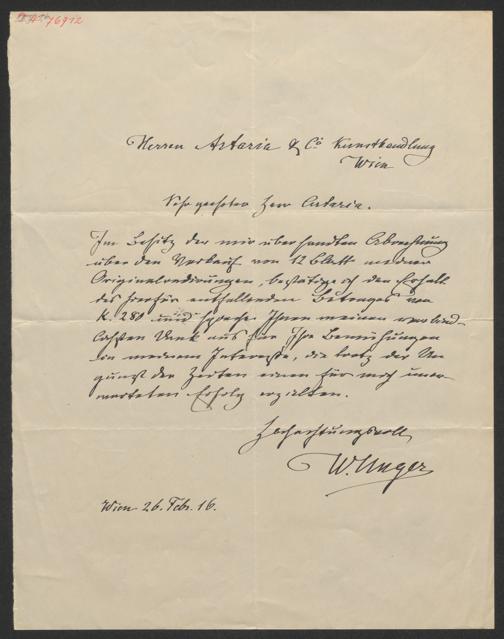 A 76912
Herren Artaria & Co Kunsthandlung
Wien
Sehr geehrter Herr Artaria.
Im Besitz der mir übersandten Abrechnung
über den Verkauf von 12 Blatt meiner
Originalradirungen, bestätige ich den Erhalt
des hiefür entfallenden Betrages von
K. 280 und spreche Ihnen meinen verbind-
lichsten Dank aus für Ihre Bemühungen
in meinem Interesse, die trotz der Un-
gunst der Zeiten einen für mich uner-
warteten Erfolg erzielten.
Hochachtungsvoll
W. Unger
Wien 26. Febr. 16.